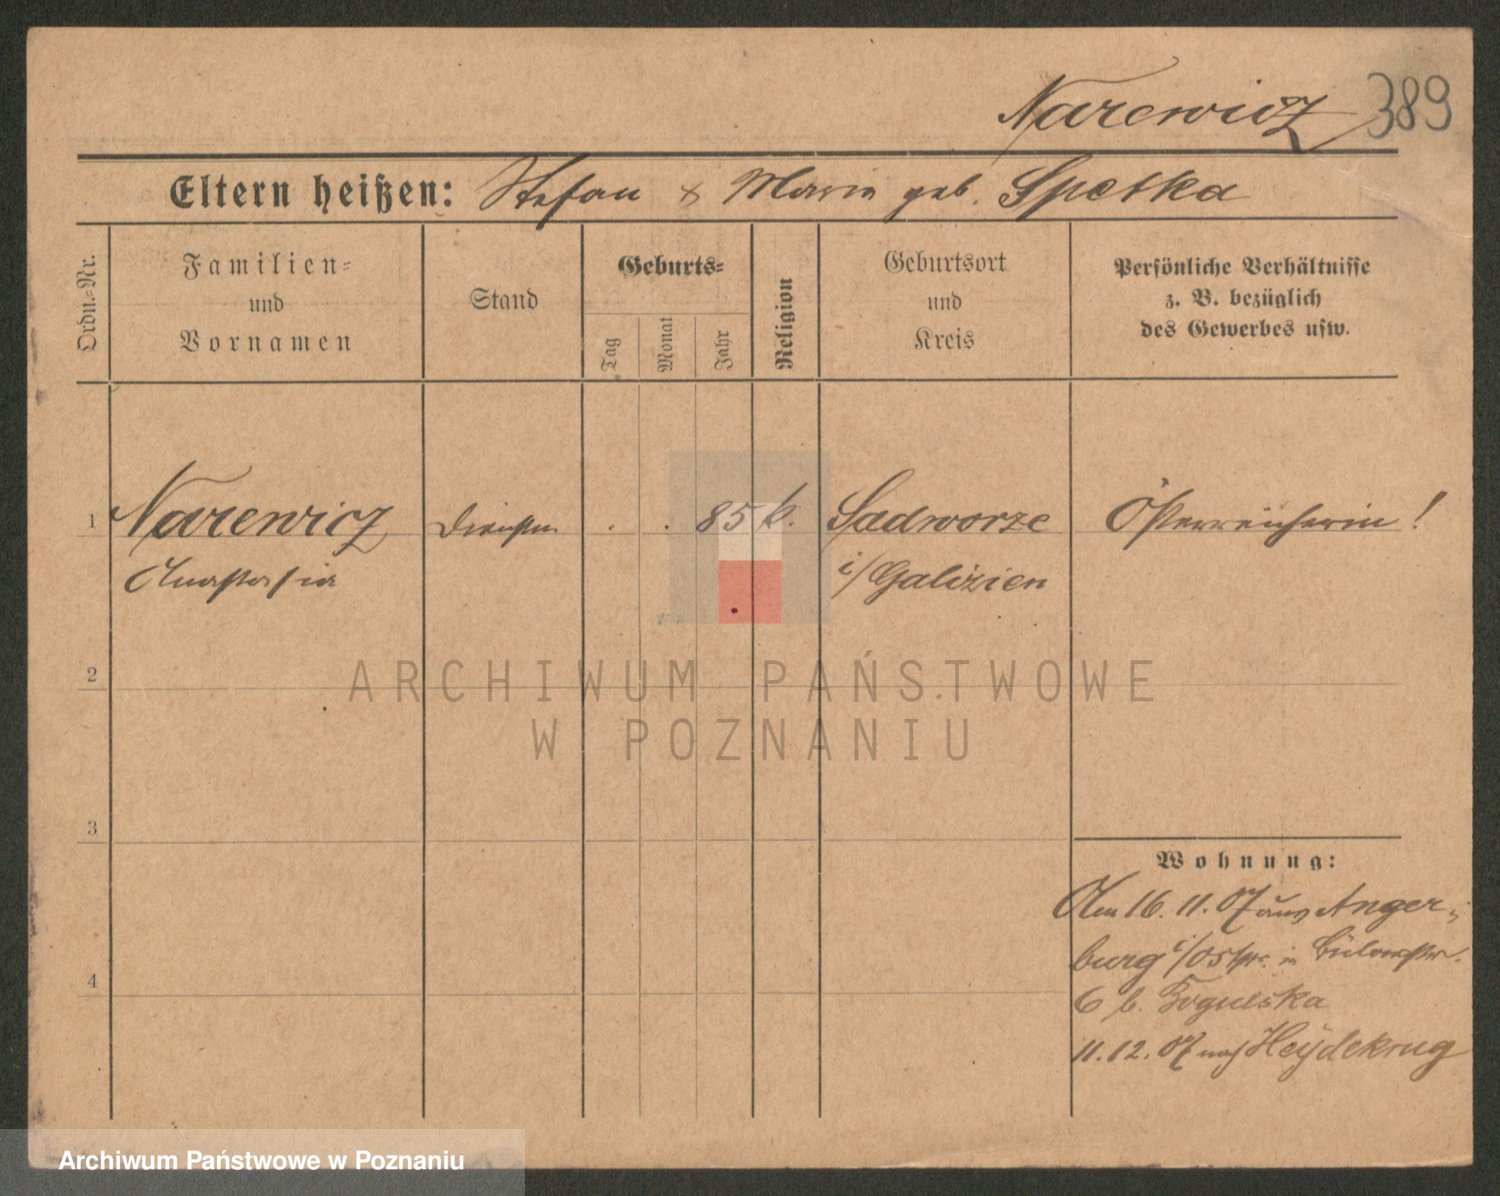 Narewicz 389
Eltern heißen: Stefan & Marie geb. Spetka
Ordn.-Nr.
Familien-
und
Vornamen
Stand
Geburts-
Tag
Monat
Jahr
Religion
Geburtsort
und
Kreis
Persönliche Verhältnisse
z. B. bezüglich
des Gewerbes usw.
1 Narewicz . . 85 k. Sadworze Österreicherin!
Anastasia i/Galizien
2
3
4
Wohnung:
Am 16. 11. 07 aus Anger-
burg i/Ostpr. in Bülowstr.
6 b.
11. 12. 07 nach Heydekrug
ARCHIWUM PAŃSTWOWE
W POZNANIU
Archiwum Państwowe w Poznaniu